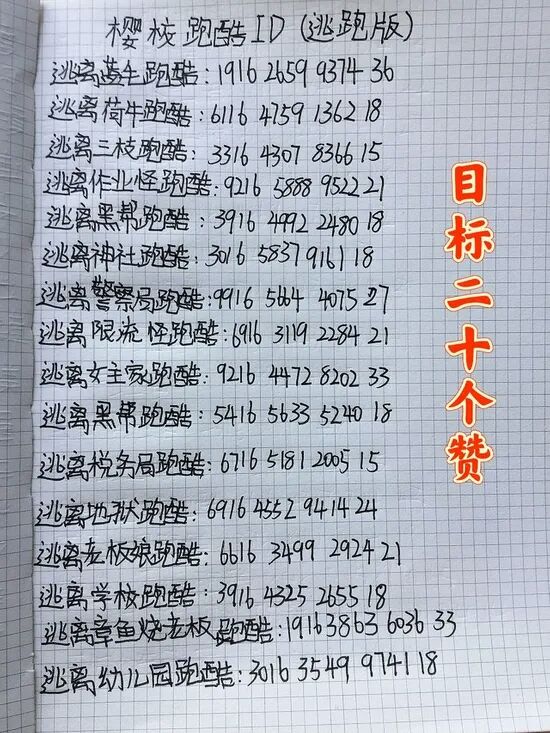 樱校跑酷ID(逃跑版)
逃离养生跑酷:1916 2659 9374 36
逃离荷牛跑酷:6116 4759 1362 18
逃离三枝跑酷:3316 4307 8366 15
逃离作业怪跑酷:9216 5888 9522 21
逃离黑帮跑酷:3916 4992 2480 18
逃离神社跑酷:3016 5837 9161 18
逃离警察局跑酷:9916 5664 4075 27
逃离限流怪跑酷:6916 3119 2284 21
逃离女主家跑酷:9216 4472 8202 33
逃离黑帮跑酷:5416 5633 5240 18
逃离税务局跑酷:6716 5181 2005 15
逃离地狱跑酷:6916 4552 9414 24
逃离老板娘跑酷:6616 3499 2924 21
逃离学校跑酷:3916 4325 2655 18
逃离章鱼烧老板跑酷:1916 3863 6036 33
逃离幼儿园跑酷:3016 3549 9741 18
目标二十个赞